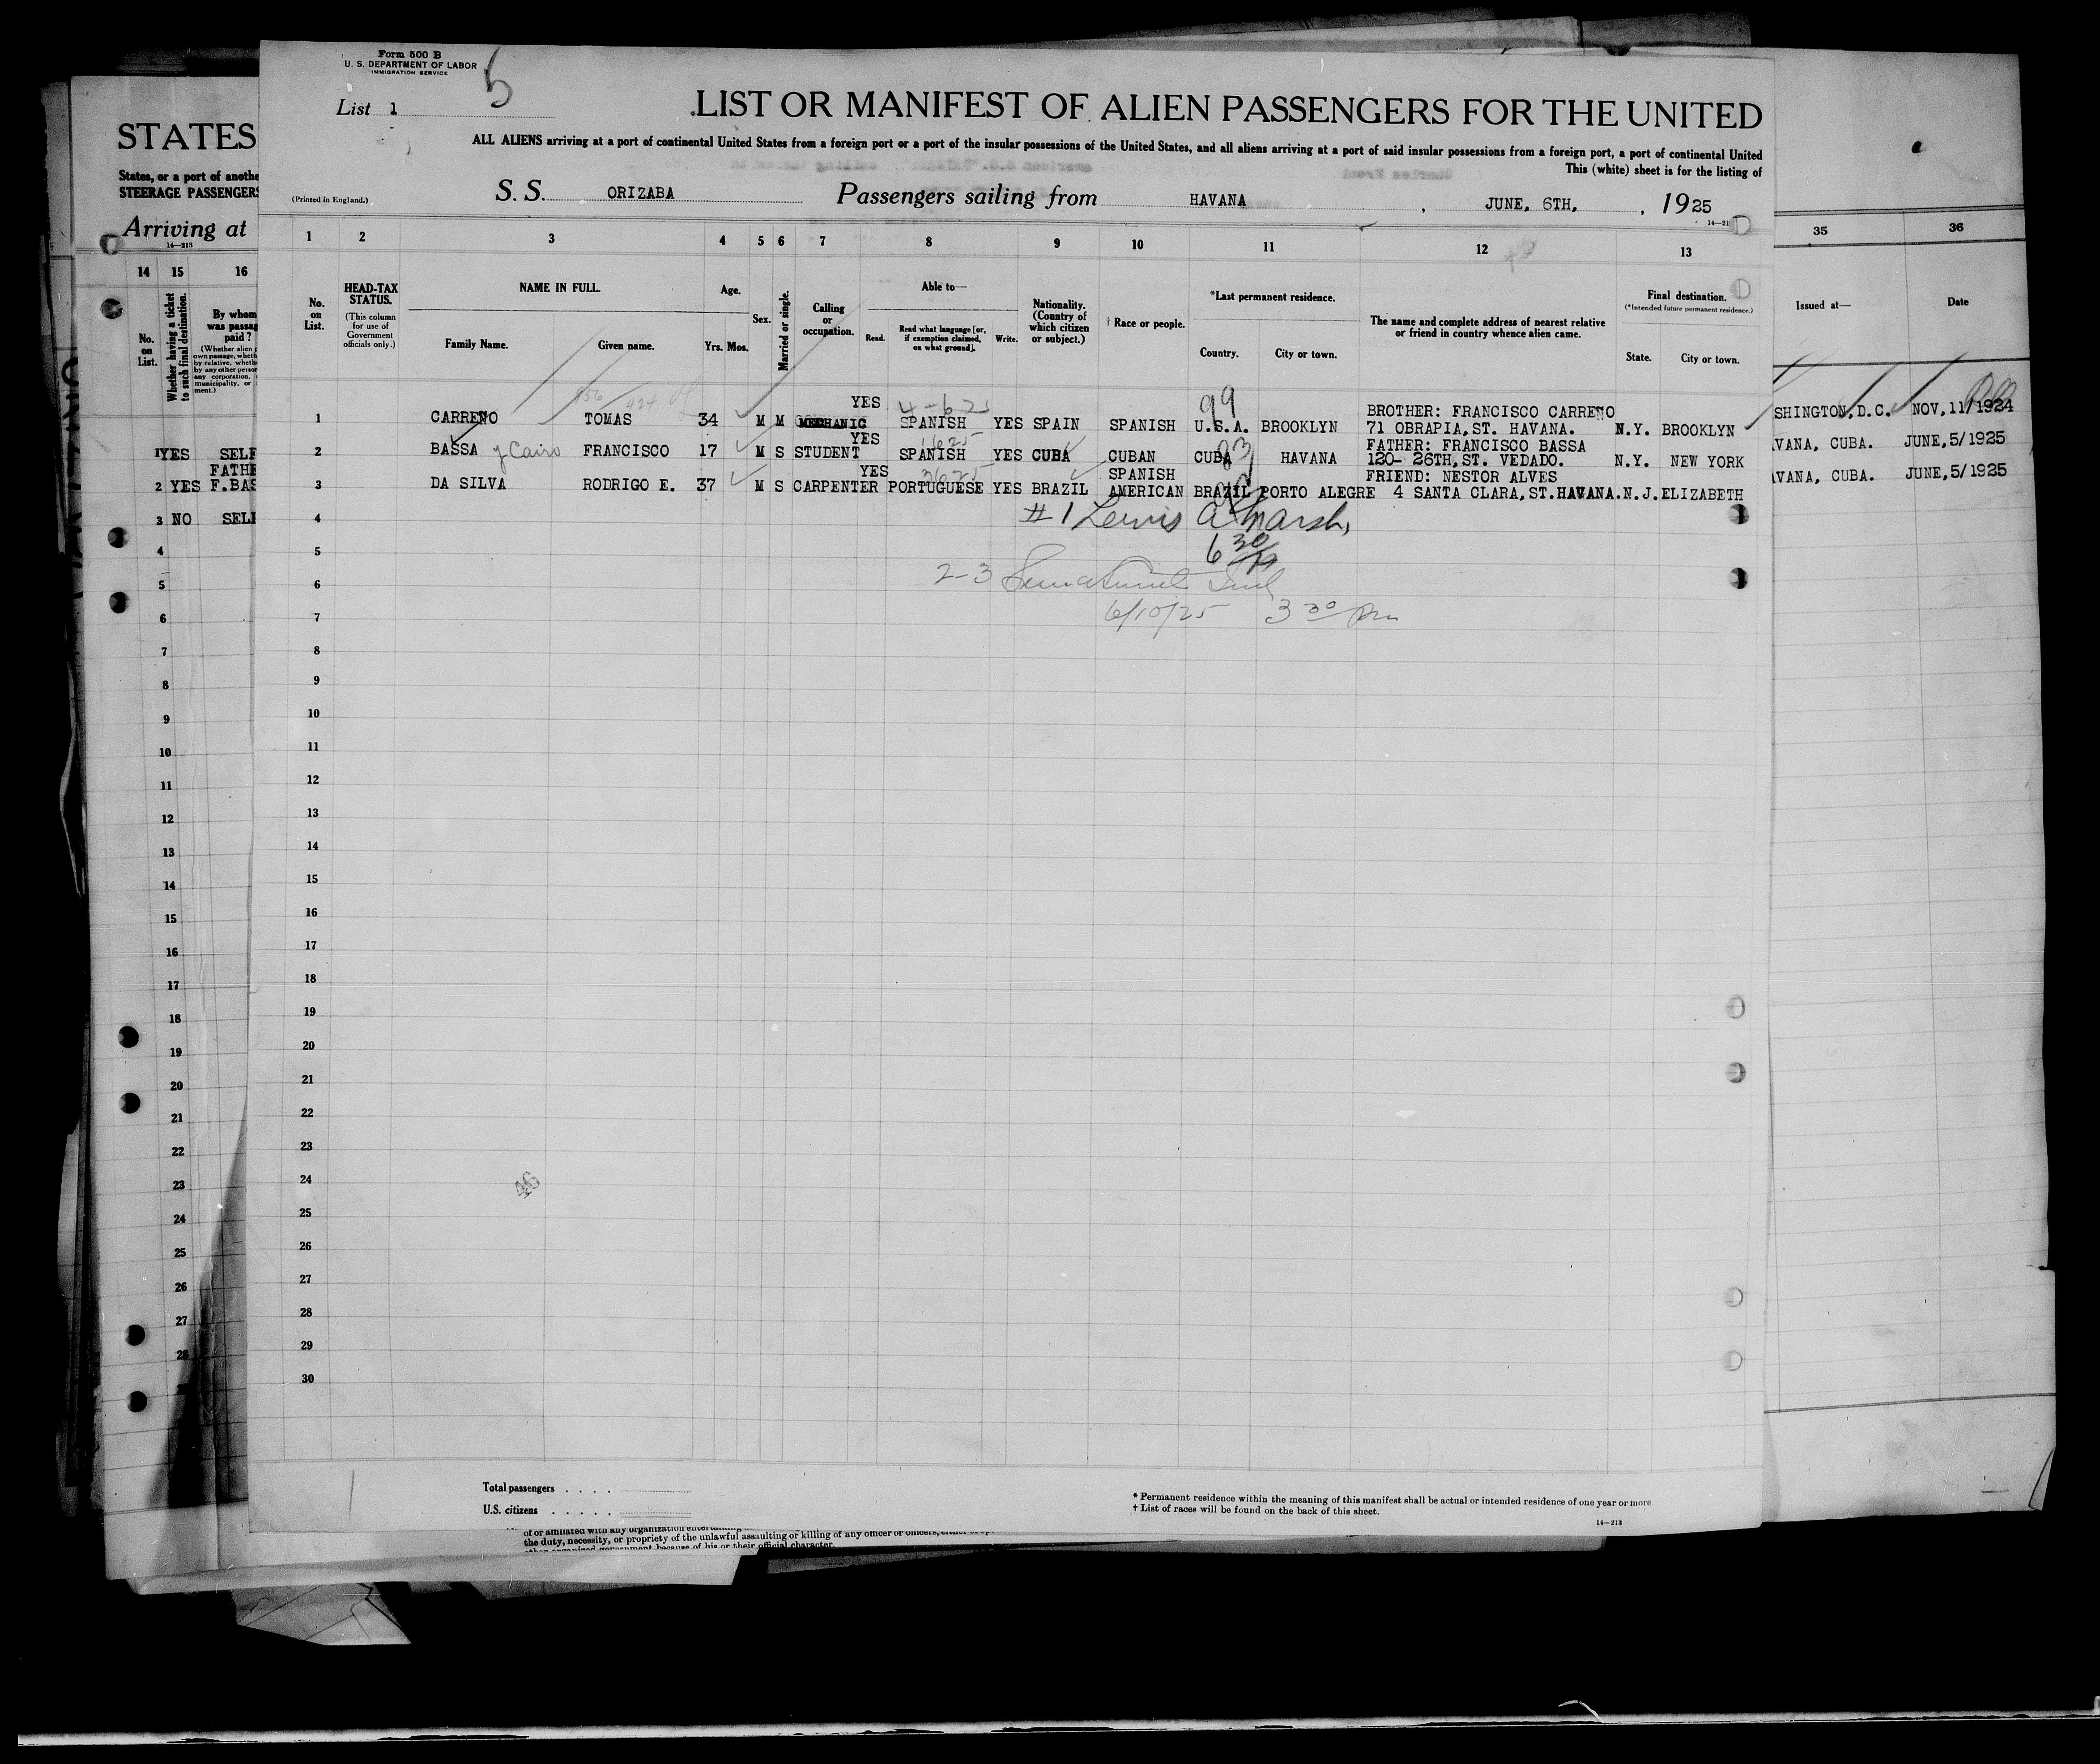 Form 500 B
U. S. DEPARTMENT OF LABOR
IMMIGRATION SERVICE
List 1
5
LIST OR MANIFEST OF ALIEN PASSENGERS FOR THE UNITED
ALL ALIENS arriving at a port of continental United States from a foreign port or a port of the insular possessions of the United States, and all aliens arriving at a port of said insular possessions from a foreign port, a port of continental United
This (white) sheet is for the listing of
(Printed in England.)
S. S. ORIZABA Passengers sailing from HAVANA , JUNE, 6TH, , 1925
1 2 3 4 5 6 7 8 9 10 11 12 13
No. on List.
HEAD-TAX STATUS.
(This column for use of Government officials only.)
NAME IN FULL.
Family Name. Given name.
Age.
Yrs. Mos.
Sex.
Married or single.
Calling or occupation.
Able to—
Read. Read what language [or, if exemption claimed, on what ground]. Write.
Nationality. (Country of which citizen or subject.)
† Race or people.
*Last permanent residence.
Country. City or town.
The name and complete address of nearest relative or friend in country whence alien came.
Final destination.
(*Intended future permanent residence.)
State. City or town.
1 CARRENO TOMAS 34 M M MECHANIC YES SPANISH YES SPAIN SPANISH U.S.A. BROOKLYN BROTHER: FRANCISCO CARRENO 71 OBRAPIA, ST. HAVANA. N.Y. BROOKLYN
99
2 BASSA y Cairo FRANCISCO 17 M S STUDENT YES SPANISH YES CUBA CUBAN CUBA HAVANA FATHER: FRANCISCO BASSA 120- 26TH, ST. VEDADO. N.Y. NEW YORK
3 DA SILVA RODRIGO E. 37 M S CARPENTER YES PORTUGUESE YES BRAZIL SPANISH AMERICAN BRAZIL PORTO ALEGRE FRIEND: NESTOR ALVES 4 SANTA CLARA, ST. HAVANA. N.J. ELIZABETH
#1 Lewis a Marsh,
6 30
2-3
6/10/25 3 30 pm
4
5
6
7
8
9
10
11
12
13
14
15
16
17
18
19
20
21
22
23
24
25
26
27
28
29
30
46
Total passengers . . . .
U.S. citizens . . . . .
* Permanent residence within the meaning of this manifest shall be actual or intended residence of one year or more
† List of races will be found on the back of this sheet.
14—213
of or affiliated with any organization
the duty, necessity, or propriety of the unlawful assaulting or killing of any officer or officers,
because of his or their official character.
STATES
States, or a port of
STEERAGE
Arriving at
14—213
14 15 16
No. on List.
Whether having a ticket to such final destination.
By whom was
paid ?
1 YES SELF
2 YES
3 NO
4
5
6
7
8
9
10
11
12
13
14
15
16
17
18
19
20
21
22
23
24
25
26
27
28
35 36
Issued at— Date
D.C. NOV, 11/1924
CUBA. JUNE, 5/1925
CUBA. JUNE, 5/1925